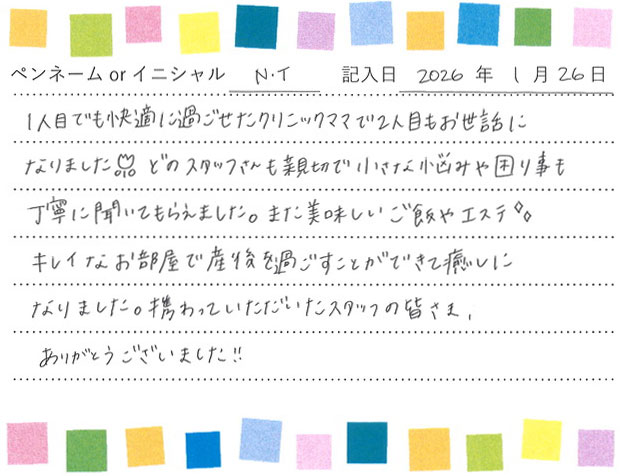 ペンネーム or イニシャル N・T 記入日 2026 年 1 月 26 日
1人目でも快適に過ごせたクリニックママで2人目もお世話に
なりました🌷 どのスタッフさんも親切で小さな悩みや困り事も
丁寧に聞いてもらえました。また美味しいご飯やエステ✧✧
キレイなお部屋で産後を過ごすことができて癒しに
なりました。携わっていただいたスタッフの皆さま、
ありがとうございました!!